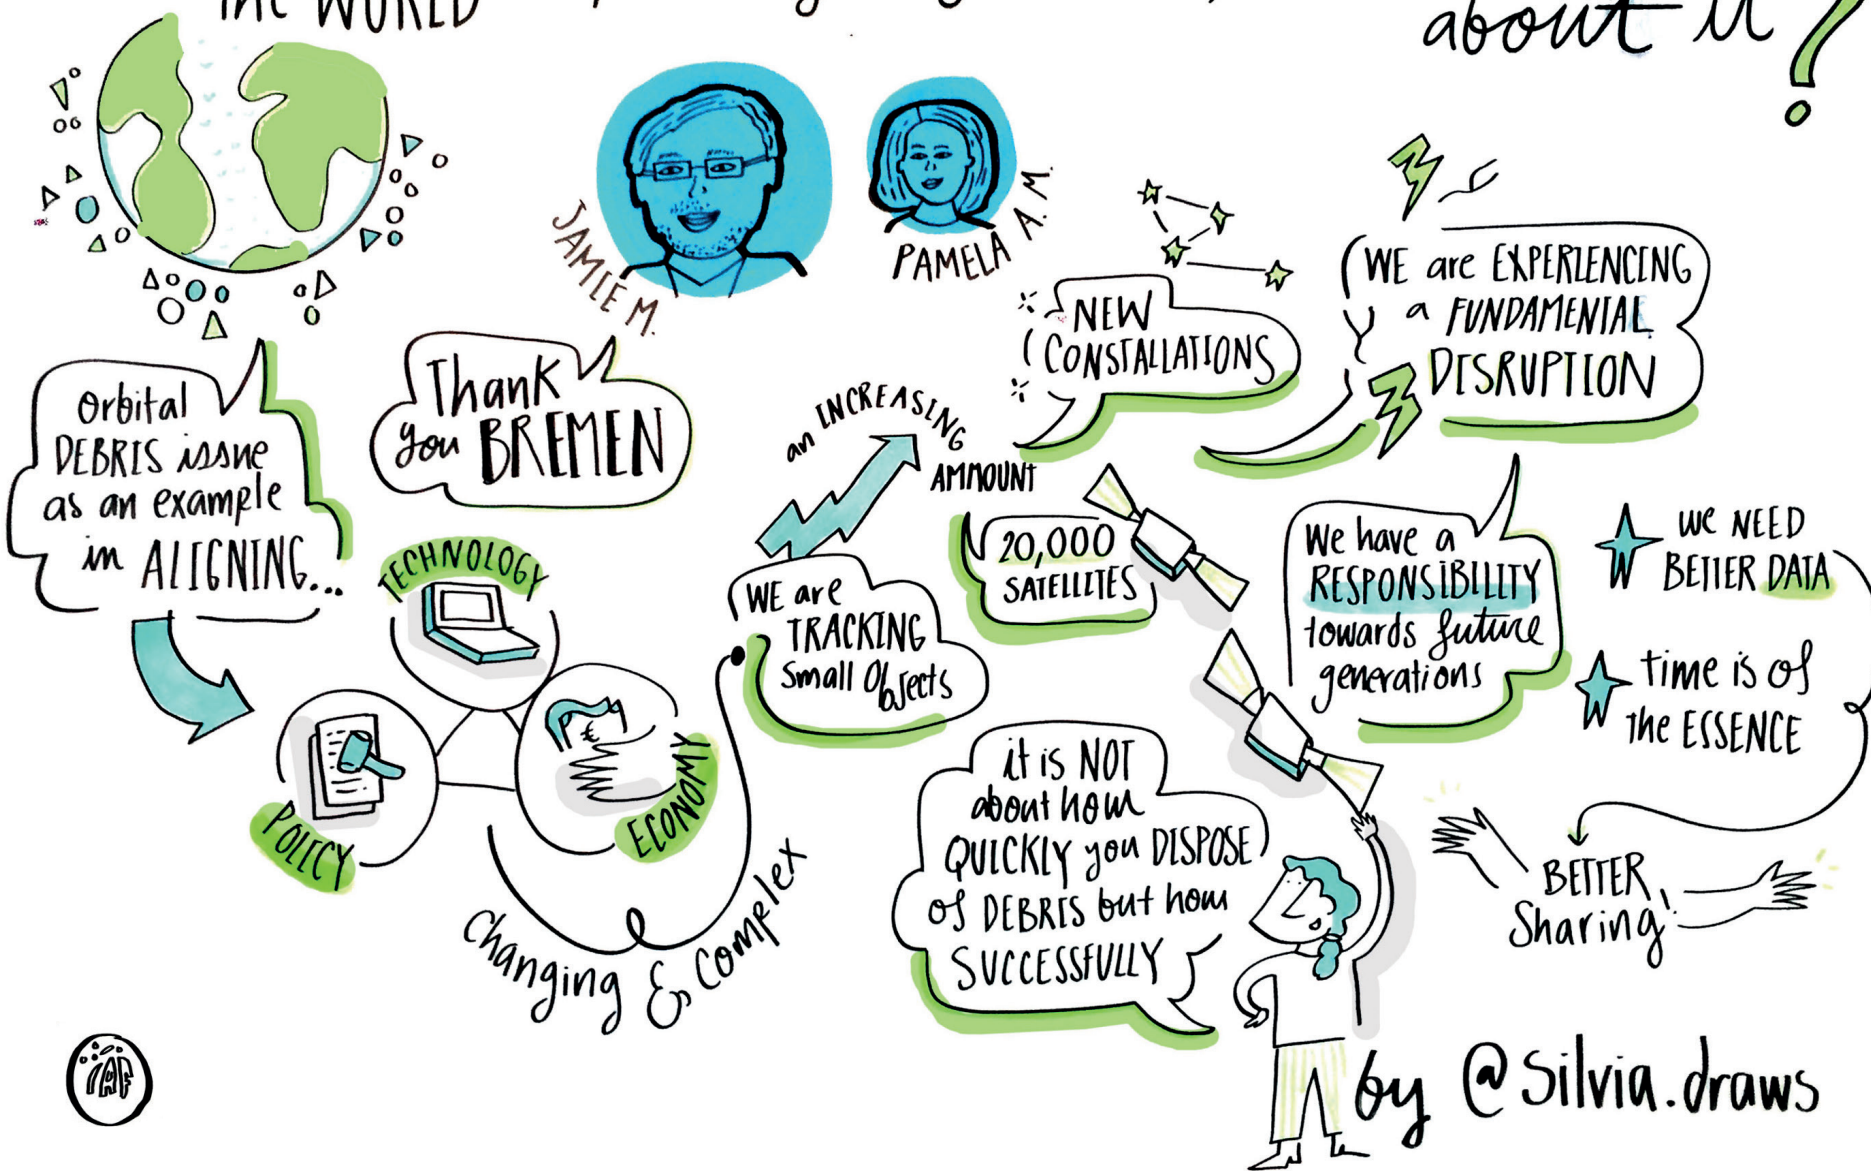 THE WORLD
about it?
JAMIE M.
PAMELA A.M.
Orbital
DEBRIS issue
as an example
in ALIGNING...
Thank
you BREMEN
TECHNOLOGY
POLICY
ECONOMY
Changing & Complex
WE are
TRACKING
Small Objects
an INCREASING
AMMOUNT
20,000
SATELLITES
NEW
CONSTALLATIONS
WE are EXPERIENCING
a FUNDAMENTAL
DISRUPTION
We have a
RESPONSIBILITY
towards future
generations
we NEED
BETTER DATA
time is of
the ESSENCE
BETTER
Sharing!
it is NOT
about how
QUICKLY you DISPOSE
of DEBRIS but how
SUCCESSFULLY
IAF
by @silvia.draws